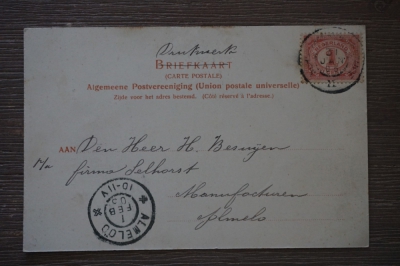 Drukwerk
BRIEFKAART
(CARTE POSTALE)
Algemeene Postvereeniging (Union postale universelle)
Zijde voor het adres bestemd. (Côté réservé à l'adresse.)
AAN Den Heer H. Besuijen
p/a firma Selhorst
Manufacturen
Almelo
10-11V
1
FEB
05
ALMELO